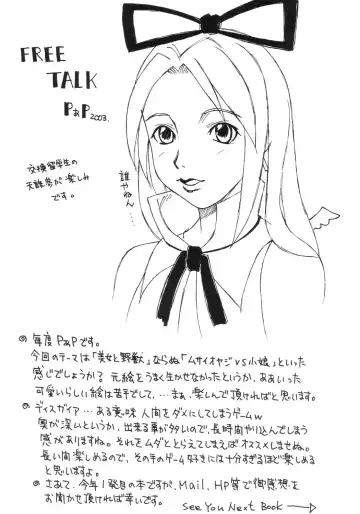 FREE
TALK
PぁP 2003.
交換留学生の
天誅参が楽しみ
です。
誰やねん…
……
◎ 毎度PぁPです。
今回のテーマは「美女と野獣」ならぬ「ムサイオヤジVS小娘」といった
感じでしょうか？ 元絵をうまく生かせなかったというか、ああいった
可愛いらしい絵は苦手でして…まぁ、楽しんで頂ければと思います。
◎ ディスガイア…ある意味人間をダメにしてしまうゲームw
奥が深いというか、出来る事が多いので、長時間やり込んでしまう
感がありますね。それをムダととらえてしまえばオススメしませぬ。
長い間楽しめるので、その手のゲーム好きには十分すぎるほど楽しめる
と思いますよ。
◎ さあて、今年1発目の本ですが、Mail、HP等で御感想を
お聞かせ頂ければ幸いです。
See You Next Book →